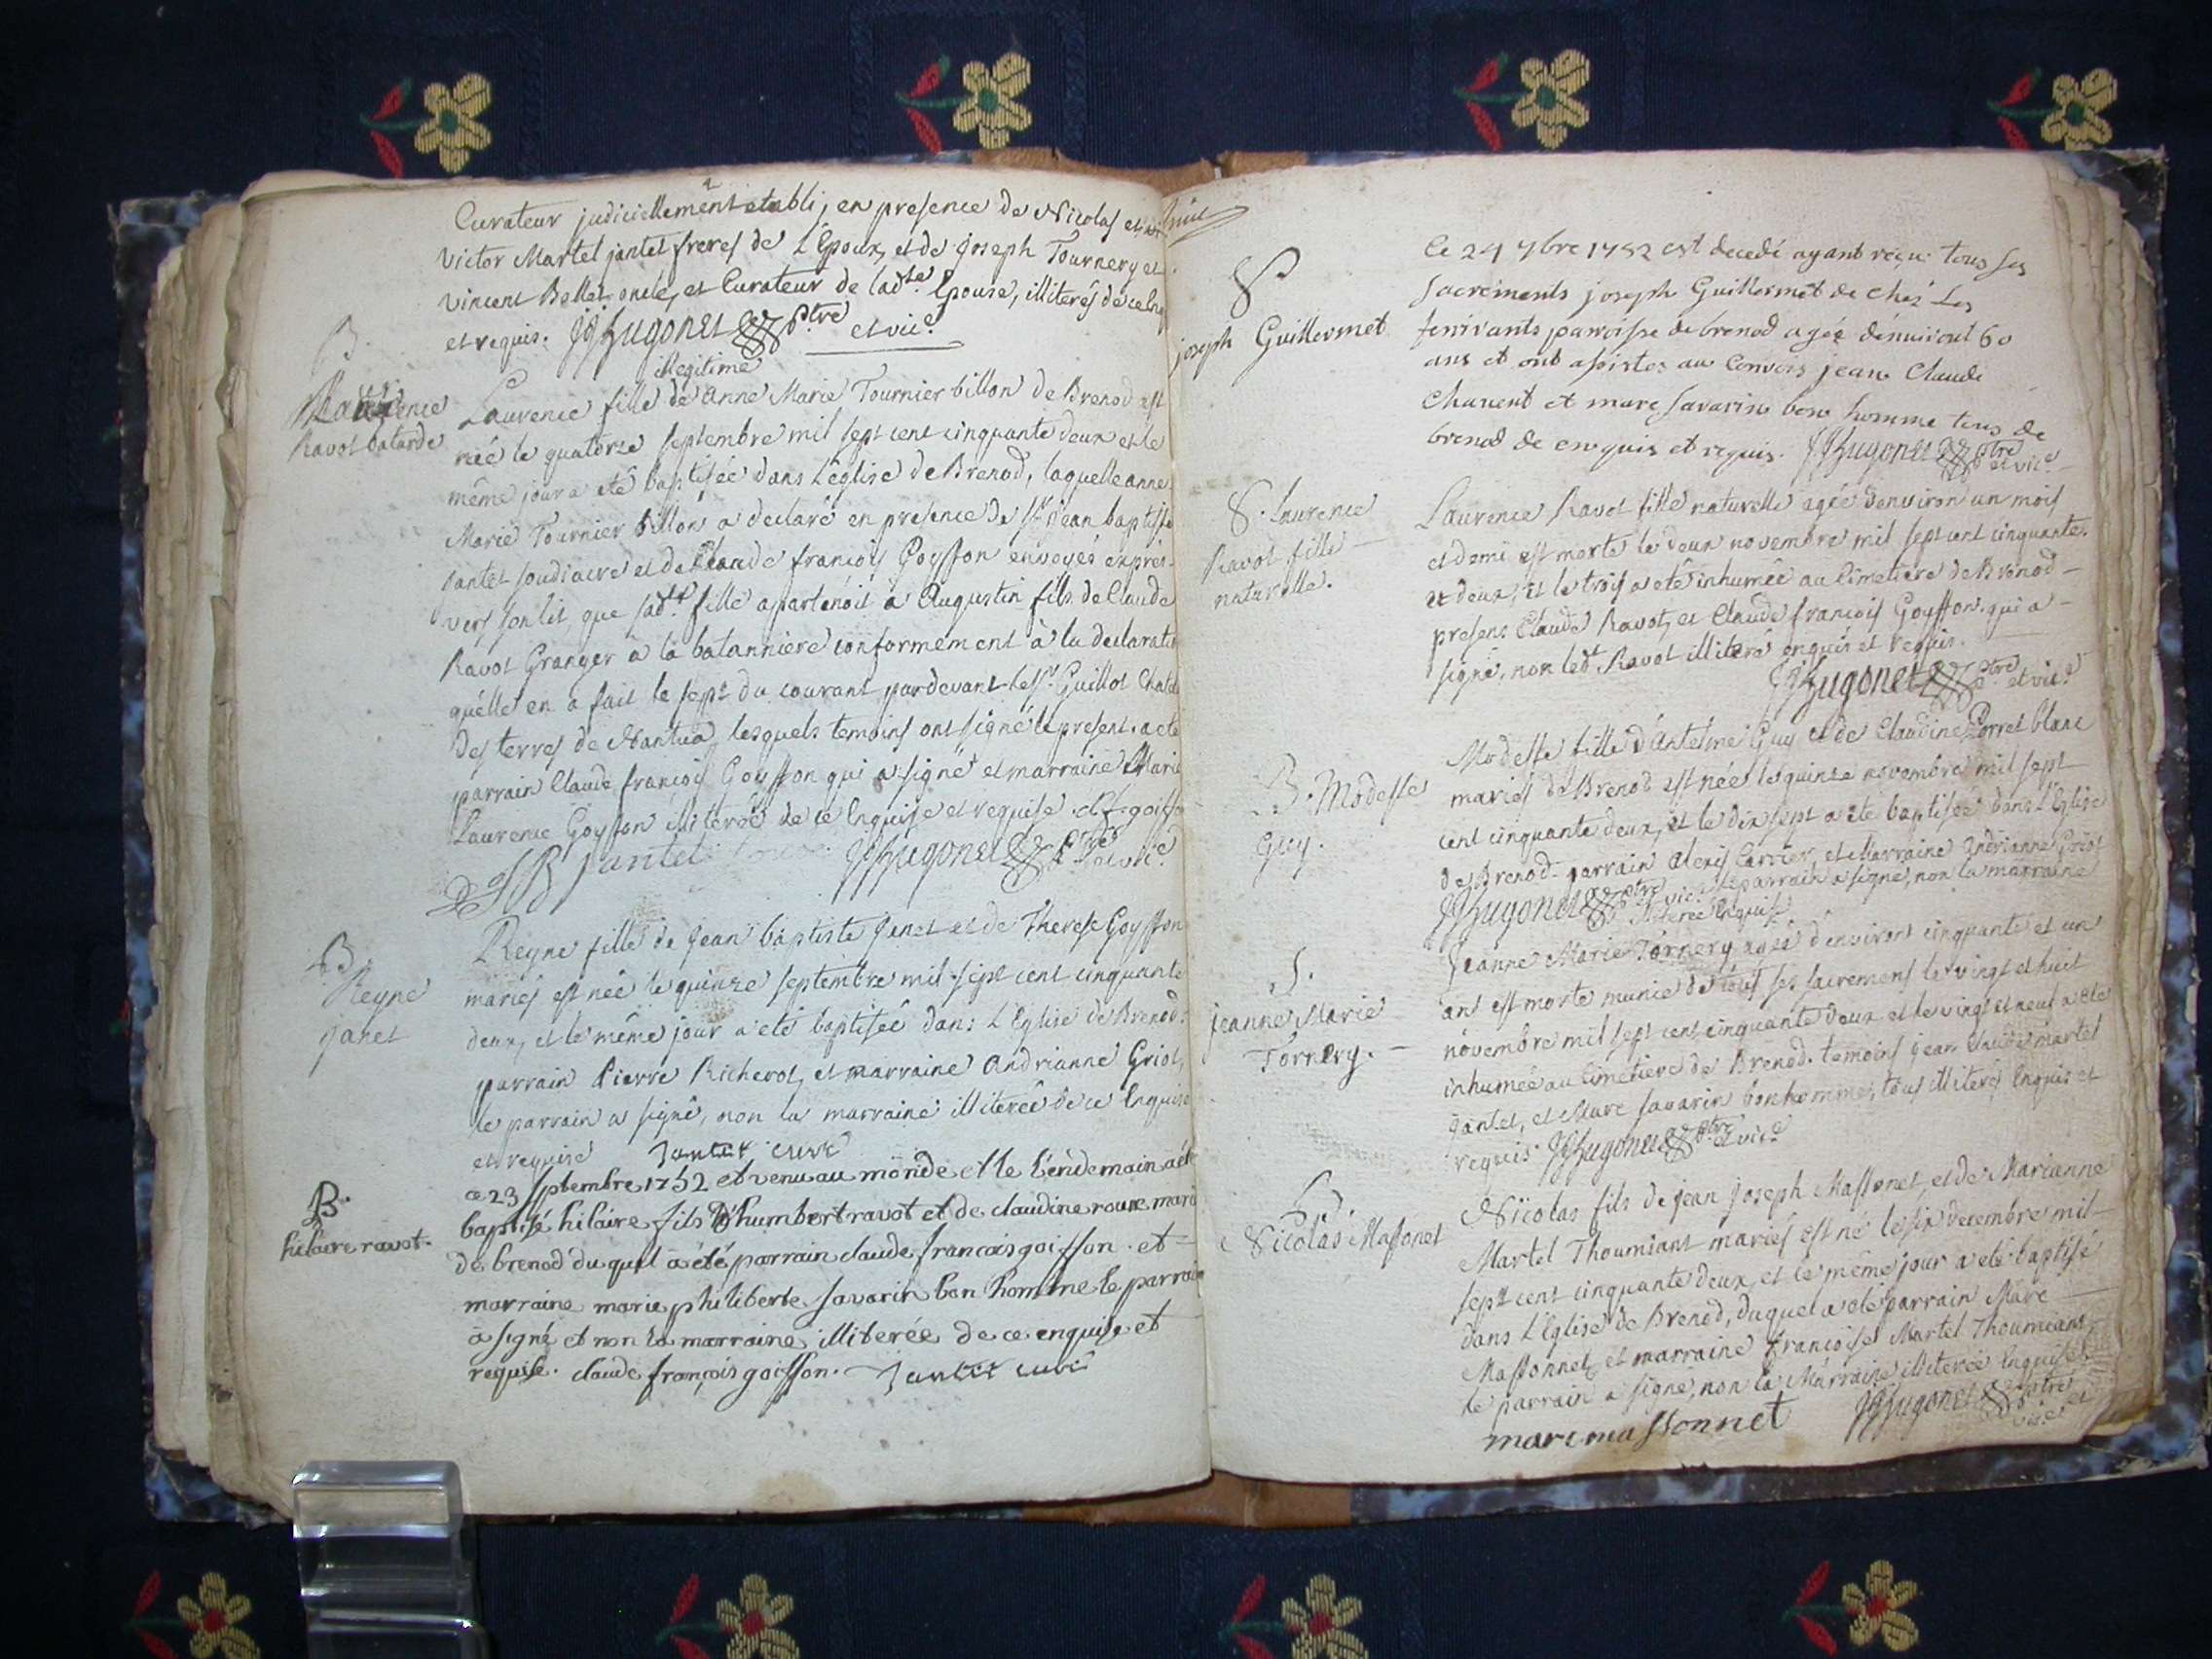 Curateur judiciellement etabli, en presence de Nicolas et
victor Martel jantet freres de L'Epoux, et de joseph Tournery et
vincent Bellet oncle, et Curateur de ladte Epouse, illiterés de ce Enq
et requis. JJ Hugonet ptre et vice
B.
Laurence
Ravot batarde
illegitime
Laurence fille de Anne Marie Tournier billon de Brenod est
née le quatorze septembre mil sept cent cinquante deux et le
même jour a eté baptisée dans L'église de Brenod, laquelle anne
Marie Tournier billon a declaré en presence de Sr jean baptiste
jantet soudiacre et de Claude françois Goyffon envoyés exprés
vers son lit, que sadte fille apartenoit a Augustin fils de Claude
Ravot Granger à la batanniere conformement à la declaration
qu'elle en a fait le sept du courant pardevant le Sr Guillot Chatel
des terres de Nantua lesquels temoins ont signé le present acte
parrain Claude françois Goyffon qui a signé et marraine Marie
Laurence Goyffon illiterée de ce Enquise et requise. c. f. goiffon
JB Jantet JJ Hugonet ptre et vice
B.
Reyne
janet
Reyne fille de jean baptiste janet et de Therese Goyffon
mariés est née le quinze septembre mil sept cent cinquante
deux, et le même jour a eté baptisée dans L'Eglise de Brenod.
parrain Pierre Richerot, et marraine Andrianne Griot,
le parrain a signé, non la marraine illiterée de ce Enquise
et requise Jantet curé
B.
hilaire ravot.
ce 23 septembre 1752 est venu au monde et le lendemain a été
baptisé hilaire fils d'humbert ravot et de claudine roux mariés
de brenod duquel a été parrain claude francois goiffon et
marraine marie philiberte savarin bon homme le parrain
a signé et non la marraine illiterée de ce enquise et
requise. claude françois goiffon. Jantet curé
S
joseph Guillermet
Le 24 7bre 1752 est decedé ayant reçu tous ses
sacrements joseph Guillermet de chés Les
ferrivants parroisse de brenod agée d'environt 60
ans et ont assistes au Convois jean Claude
Chanent et marc savarin bon homme tous de
brenod de enquis et requis. JJ Hugonet ptre et vice
S. Laurence
Ravot fille
naturelle.
Laurence Ravot fille naturelle agée d'environ un mois
et demi est morte le deux novembre mil sept cent cinquante.
et deux, et le trois a eté inhumée au Cimetiere de Brenod
presens Claude Ravot, et Claude françois Goyffon qui a
signé, non ledt Ravot illiteré enquis et requis.
JJ Hugonet ptre et vice
B. Modeste
Guy.
Modeste fille d'Antelme Guy et de Claudine Porret blanc
mariés de Brenod est née le quinze novembre mil sept
cent cinquante deux, et le dix sept a eté baptisée dans L'Eglise
de Brenod. parrain Alexis Carrier, et Marraine Andrianne Griot
JJ Hugonet ptre et vice le parrain a signé, non la marraine
illiterée Enquise
S.
jeanne Marie
Tornery.
Jeanne Marie Tornery agée d'environ cinquante et un
ans est morte munie de tous ses sacremens le vingt et huit
novembre mil sept cent cinquante deux et le vingt et neuf a eté
inhumée au Cimetiere de Brenod. temoins jean claude martel
jantet, et Marc savarin bonhomme, tous illiterés Enquis et
requis JJ Hugonet ptre et vice
B.
Nicolas Massonet
Nicolas fils de jean joseph Massonet, et de Marianne
Martel Thoumiant mariés est né le six decembre mil
sept cent cinquante deux, et le même jour a eté baptisé
dans L'Eglise de Brenod, duquel a eté parrain Marc
Massonnet, et marraine françoise Martel Thoumiant,
le parrain a signé, non la Marraine illiterée Enquise
marc massonnet JJ Hugonet ptre et vice